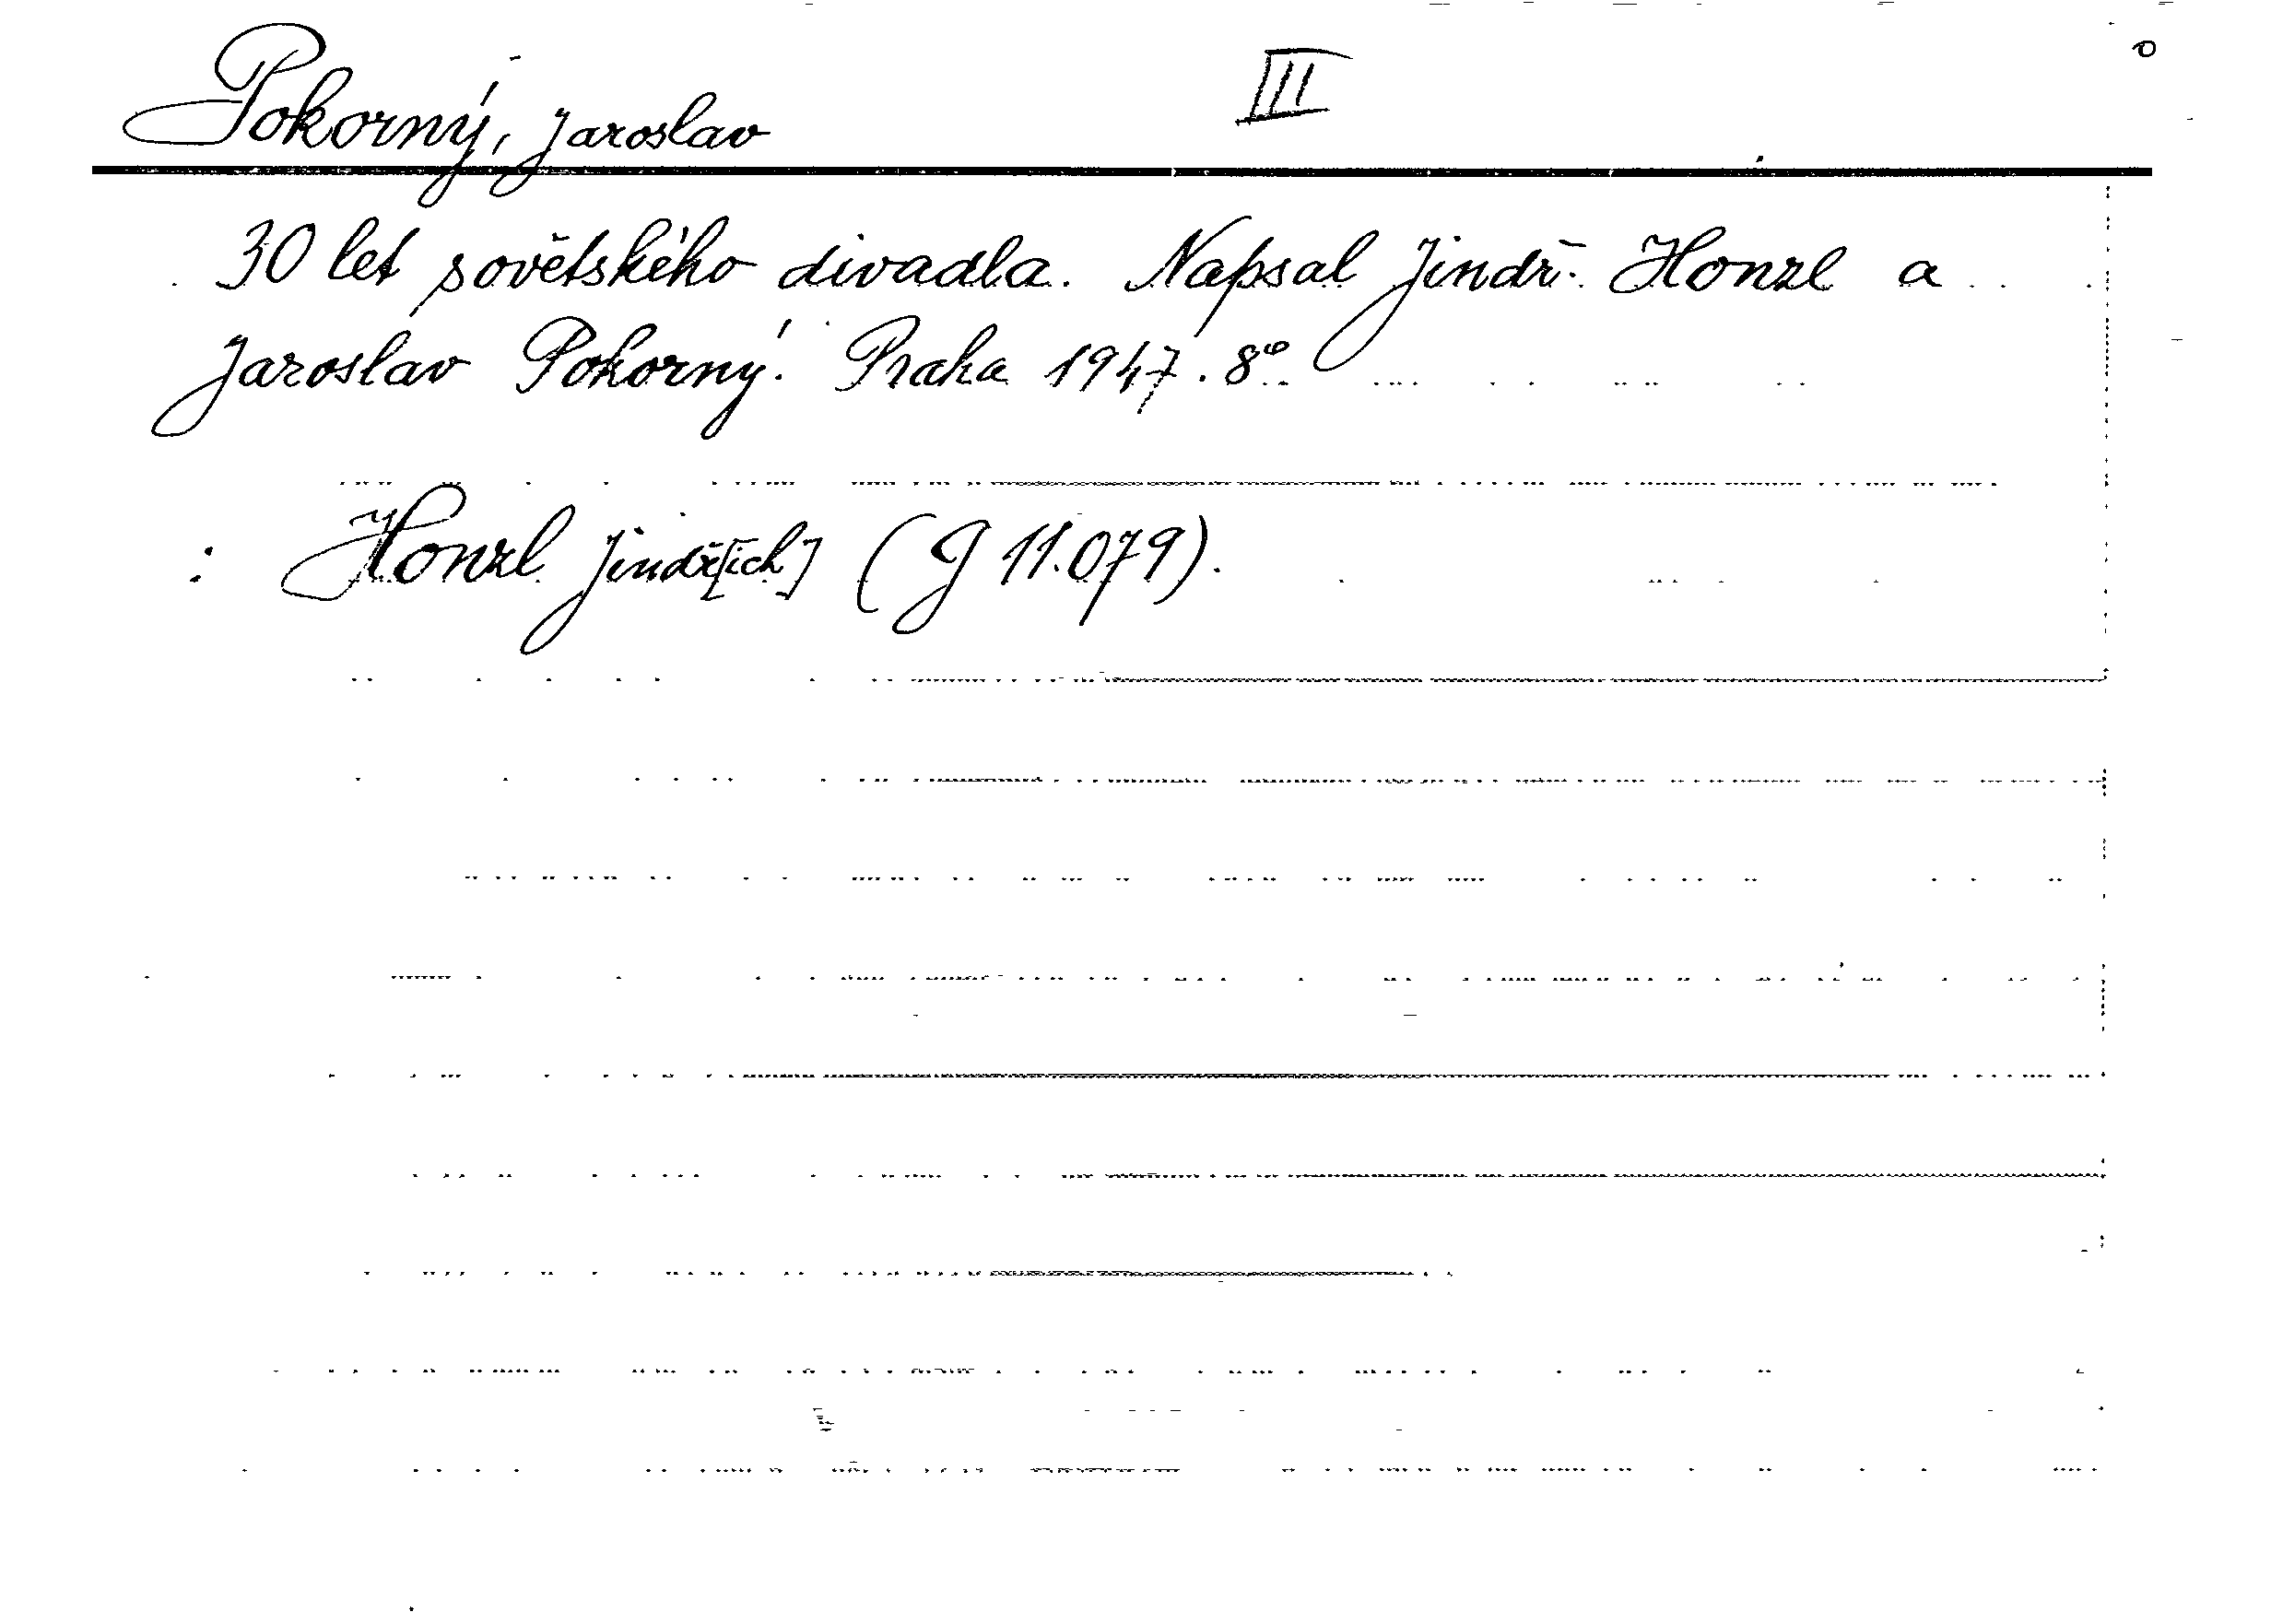 Pokorný, Jaroslav III
30 let sovětského divadla. Napsal Jindř. Honzl a
Jaroslav Pokorný. Praha 1947. 8°
: Honzl Jindř[ich] (G 11.079).